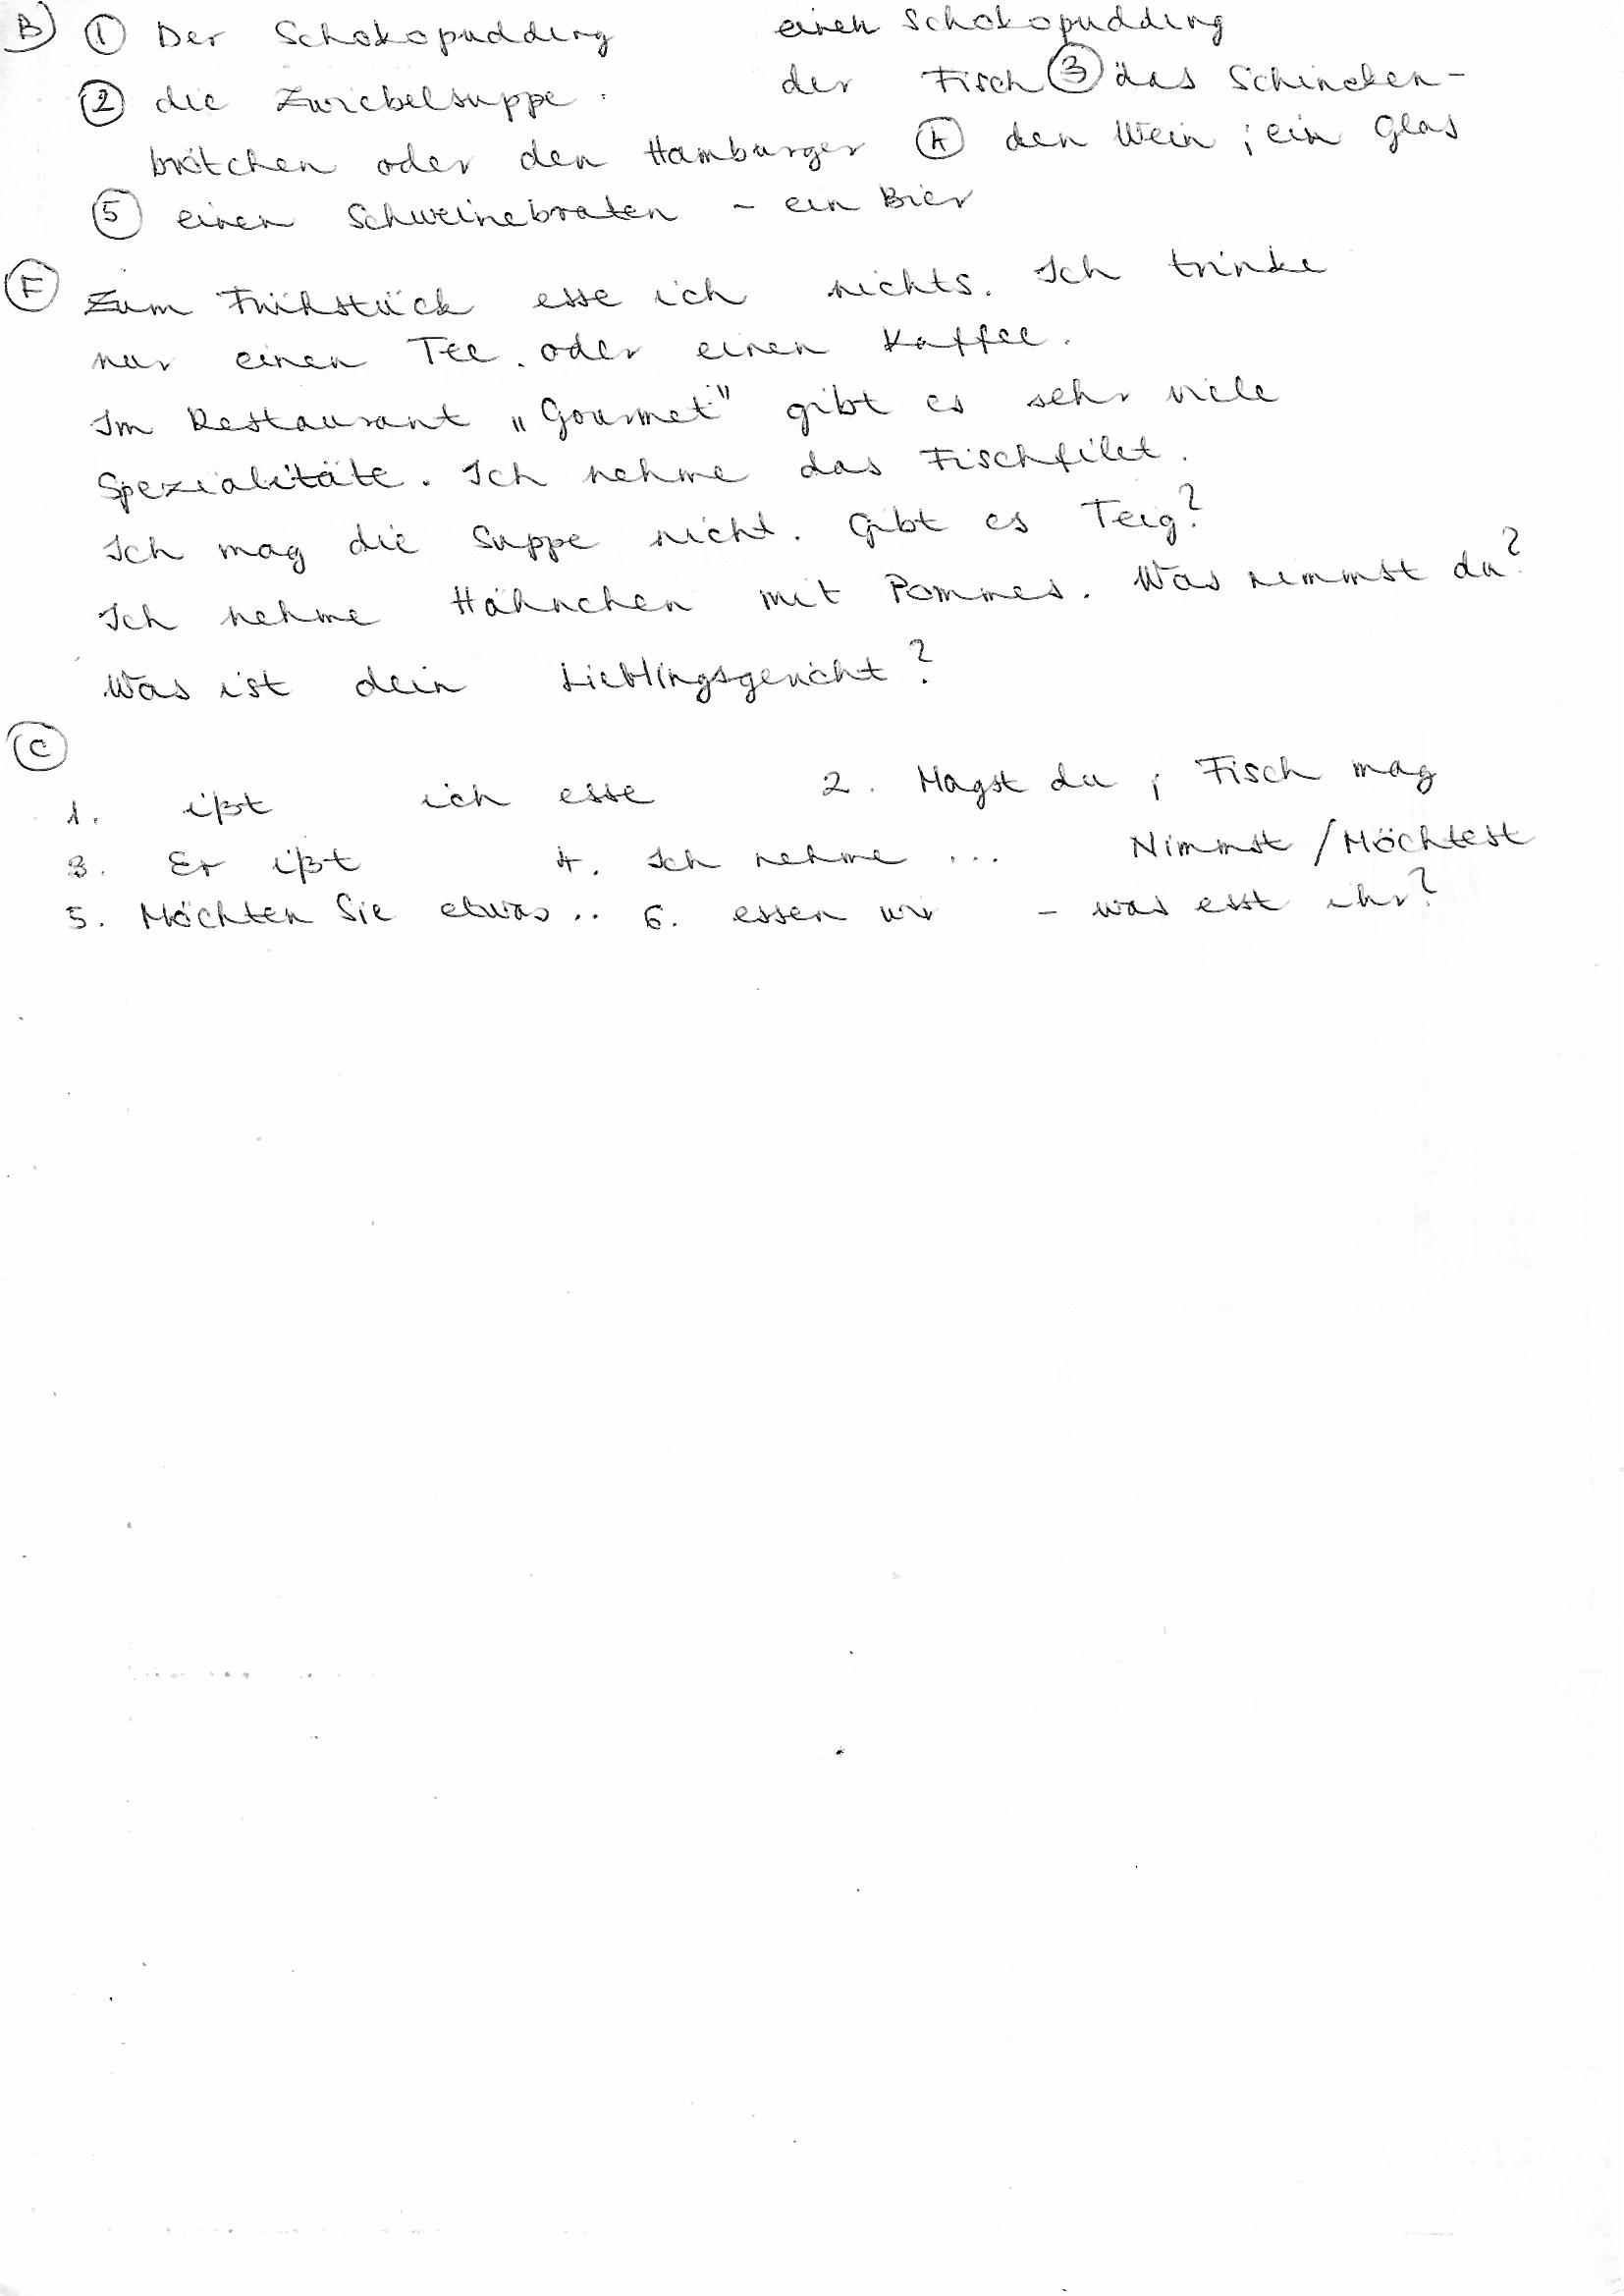 B) ① Der Schokopudding einen Schokopudding
② die Zwiebelsuppe. der Fisch ③ das Schincken-
brötchen oder den Hamburger ④ den Wein ; ein Glas
⑤ einen Schweinebraten - ein Bier
Ⓕ Zum Frühstück esse ich nichts. Ich trinke
nur einen Tee. oder einen Kaffee.
Im Restaurant „Gourmet" gibt es sehr viele
Spezialitäte. Ich nehme das Fischfilet.
Ich mag die Suppe nicht. Gibt es Teig?
Ich nehme Hähnchen mit Pommes. Was nimmst du?
Was ist dein Lieblingsgericht?
Ⓒ
1. ißt ich esse 2. Magst du ; Fisch mag
3. Er ißt 4. Ich nehme ... Nimmst / Möchtest
5. Möchten Sie etwas .. 6. essen wir - was esst ihr?